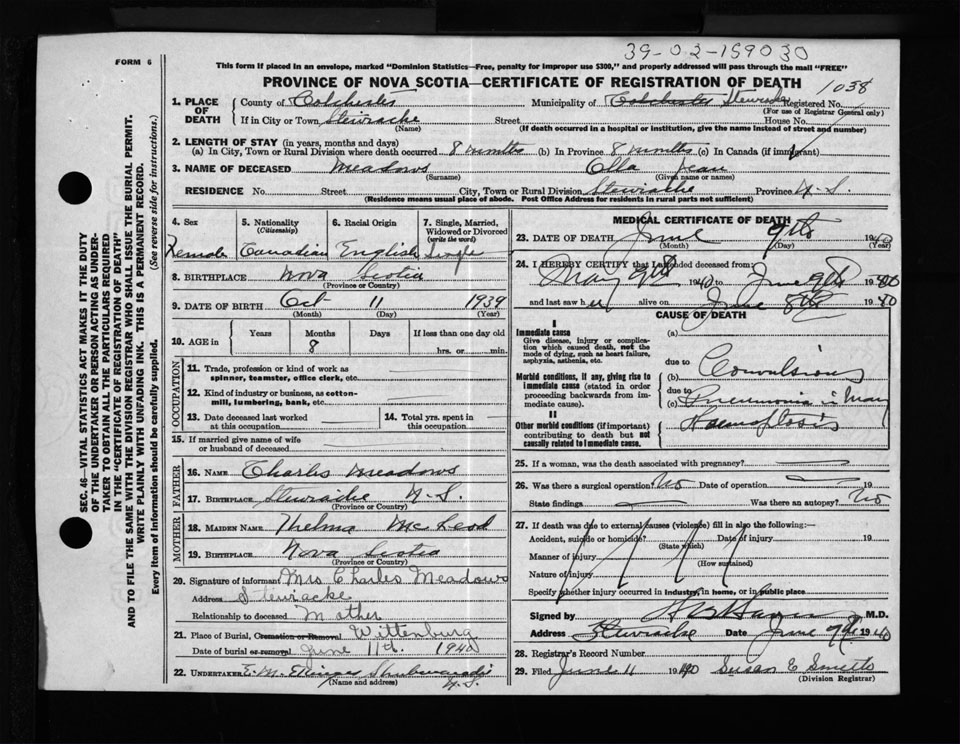 39-02-159030
FORM 6
This form if placed in an envelope, marked "Dominion Statistics—Free, penalty for improper use $300," and properly addressed will pass through the mail "FREE"
PROVINCE OF NOVA SCOTIA—CERTIFICATE OF REGISTRATION OF DEATH
1038
1. PLACE OF DEATH
County of Colchester Municipality of Colchester Stewiacke Registered No.
(For use of Registrar General only)
If in City or Town Stewiacke Street House No.
(Name) (If death occurred in a hospital or institution, give the name instead of street and number)
2. LENGTH OF STAY (in years, months and days)
(a) In City, Town or Rural Division where death occurred 8 months (b) In Province 8 months (c) In Canada (if immigrant)
3. NAME OF DECEASED Meadows Olla Jean
(Surname) (Given name or names)
RESIDENCE No. Street City, Town or Rural Division Stewiacke Province N.S.
(Residence means usual place of abode. Post Office Address for residents in rural parts not sufficient)
4. Sex 5. Nationality (Citizenship) 6. Racial Origin 7. Single, Married, Widowed or Divorced (write the word)
Female Canadian English Single
8. BIRTHPLACE Nova Scotia
(Province or Country)
9. DATE OF BIRTH Oct 11 1939
(Month) (Day) (Year)
10. AGE in Years Months Days If less than one day old
8 hrs. or min.
OCCUPATION
11. Trade, profession or kind of work as spinner, teamster, office clerk, etc.
12. Kind of industry or business, as cotton-mill, lumbering, bank, etc.
13. Date deceased last worked at this occupation 14. Total yrs. spent in this occupation
15. If married give name of wife or husband of deceased
FATHER
16. NAME Charles Meadows
17. BIRTHPLACE Stewiacke N.S.
(Province or Country)
MOTHER
18. MAIDEN NAME Thelma McLeod
19. BIRTHPLACE Nova Scotia
(Province or Country)
20. Signature of informant Mrs Charles Meadows
Address Stewiacke
Relationship to deceased Mother
21. Place of Burial, Cremation or Removal Wittenburg
Date of burial or removal June 11th. 1940
22. UNDERTAKER E.M. Shubenacadie
(Name and address) N.S.
MEDICAL CERTIFICATE OF DEATH
23. DATE OF DEATH June 9th 1940
(Month) (Day) (Year)
24. I HEREBY CERTIFY that I attended deceased from:
May 9th 1940 to June 9th 1940
and last saw her alive on June 8th 1940
CAUSE OF DEATH
I
Immediate cause
Give disease, injury or complication which caused death, not the mode of dying, such as heart failure, asphyxia, asthenia, etc.
(a)
due to
Morbid conditions, if any, giving rise to immediate cause (stated in order proceeding backwards from immediate cause).
(b) Convulsions
due to
(c) Pneumonia in May
II
Other morbid conditions (if important) contributing to death but not causally related to immediate cause.
25. If a woman, was the death associated with pregnancy?
26. Was there a surgical operation? No Date of operation 19
State findings Was there an autopsy? No
27. If death was due to external causes (violence) fill in also the following:
Accident, suicide or homicide? Date of injury 19
(State which)
Manner of injury
(How sustained)
Nature of injury
Specify whether injury occurred in industry, in home, or in public place
Signed by M.D.
Address Stewiacke Date June 9th 1940
28. Registrar's Record Number
29. Filed June 11 1940 Susan E Smeeto
(Division Registrar)
SEC. 46—VITAL STATISTICS ACT MAKES IT THE DUTY
OF THE UNDERTAKER OR PERSON ACTING AS UNDER-
TAKER TO OBTAIN ALL THE PARTICULARS REQUIRED
IN THE "CERTIFICATE OF REGISTRATION OF DEATH"
AND TO FILE THE SAME WITH THE DIVISION REGISTRAR WHO SHALL ISSUE THE BURIAL PERMIT.
WRITE PLAINLY WITH UNFADING INK. THIS IS A PERMANENT RECORD.
Every item of Information should be carefully supplied. (See reverse side for instructions.)